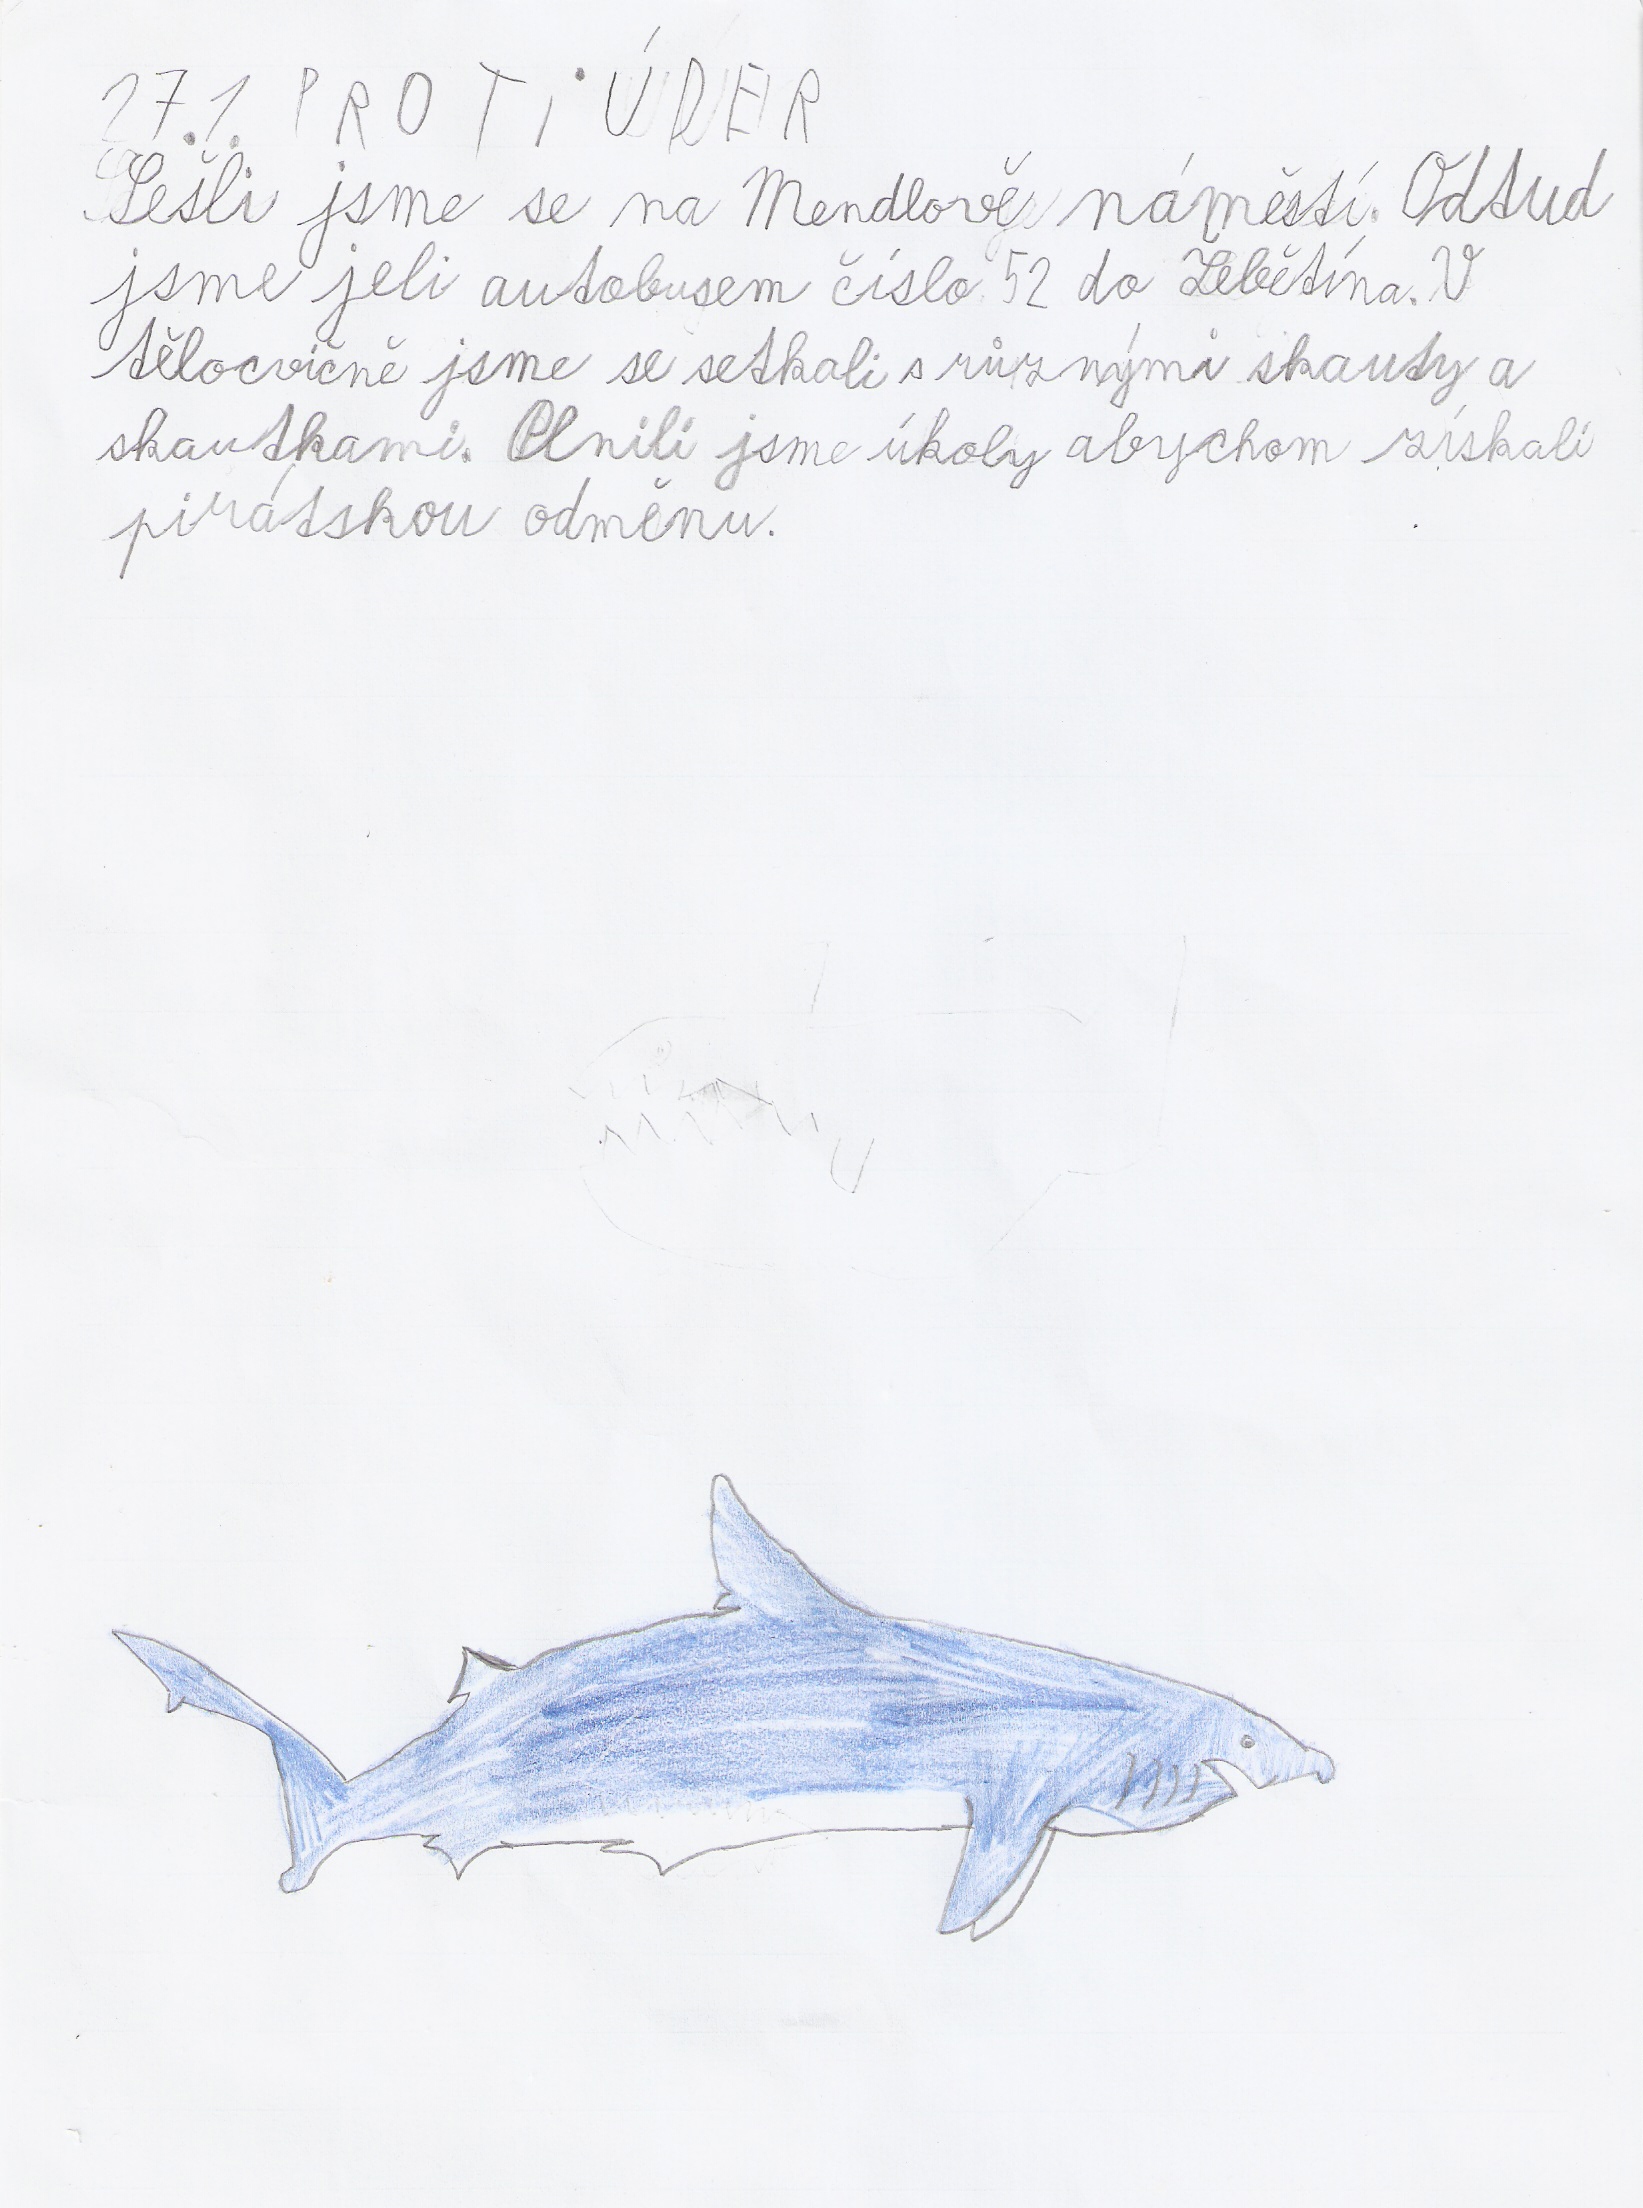 27.1. PROTIÚDER
Sešli jsme se na Mendlově náměstí. Odtud
jsme jeli autobusem číslo 52 do Žebětína. V
tělocvičně jsme se setkali s různými skauty a
skautkami. Plnili jsme úkoly abychom získali
pirátskou odměnu.